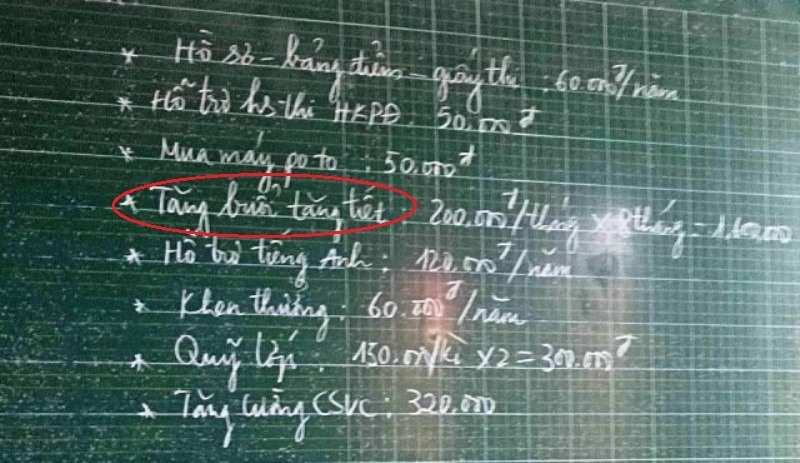 * Hồ sơ - bảng điểm - giấy thi : 60.000đ/năm
* Hỗ trợ hs thi HKPĐ : 50.000đ
* Mua máy po to : 50.000đ
* Tăng buổi tăng tiết : 200.000đ/tháng x 8 tháng = 1.600.000
* Hỗ trợ tiếng Anh : 120.000đ/năm
* Khen thưởng : 60.000đ/năm
* Quỹ lớp : 150.000/kì x 2 = 300.000đ
* Tăng cường CSVC : 320.000